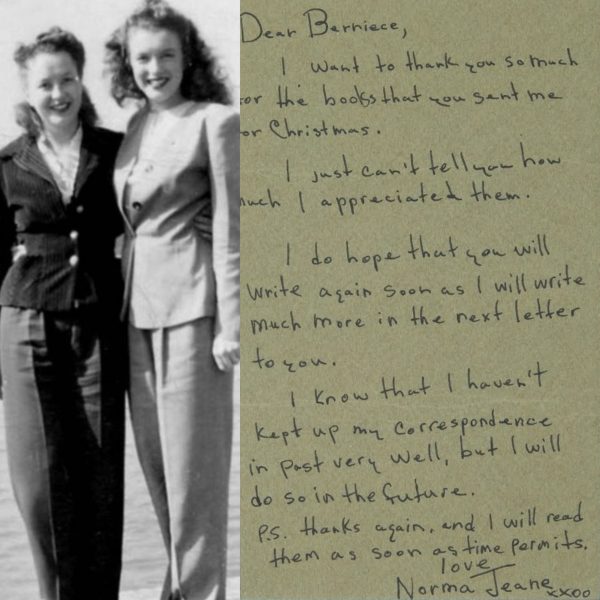 Dear Berniece,
I want to thank you so much
for the books that you sent me
or Christmas.
I just can't tell you how
much I appreciated them.
I do hope that you will
write again soon as I will write
much more in the next letter
to you.
I know that I haven't
kept up my correspondence
in past very well, but I will
do so in the future.
P.S. thanks again, and I will read
them as soon as time permits.
love
Norma Jeane
xxoo